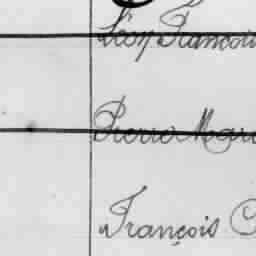 Léon Francoi
Pierre Mari
François C